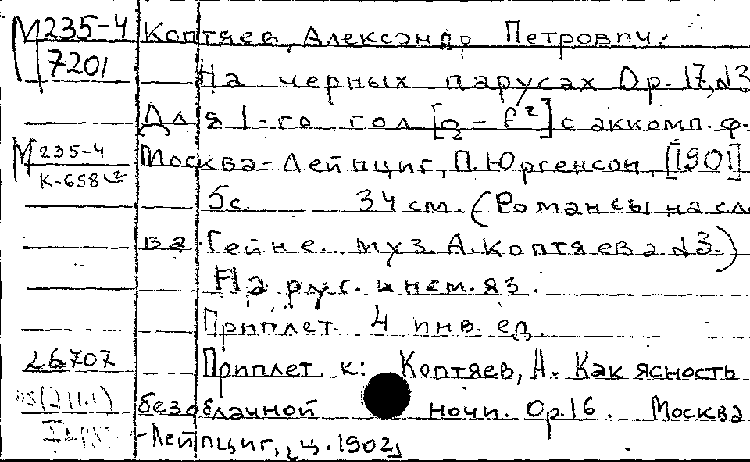 М 235-4 Коптяев, Александр Петрович.
7201 На черных парусах Ор. 17, №3
Для 1-го гол [ - f²] с аккомп. ф.
М 235-4 Москва-Лейпциг, П. Юргенсон, [1901]
К-658 5с. 34 см. (Романсы на сло
ва Гейне. муз. А. Коптяева №3.)
На рус. и нем. яз.
Приплет. 4 инв. ед.
26707 Приплет к: Коптяев, А. Как ясность
безоблачной ночи. Ор. 16. Москва
-Лейпциг, ц. 1902.